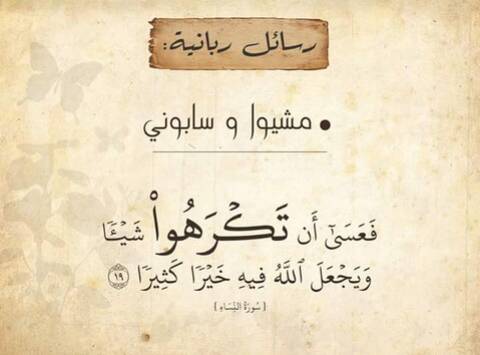 رسائل ربانية:
• مشيوا و سابوني
فَعَسَىٰٓ أَن تَكْرَهُوا۟ شَيْـًٔا
وَيَجْعَلَ ٱللَّهُ فِيهِ خَيْرًا كَثِيرًا ١٩
[سُورَةُ النِّسَاءِ]